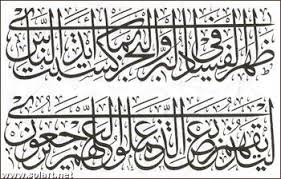 ظهر الفساد في البر والبحر بما كسبت أيدي الناس
ليذيقهم بعض الذي عملوا لعلهم يرجعون
www.solart.net